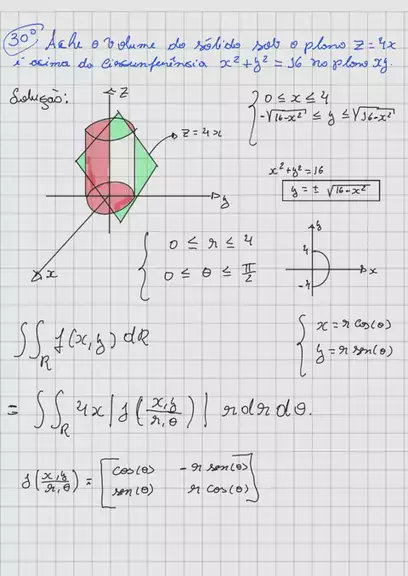 30º Ache o volume do sólido sob o plano z = 4x
e acima da circunferência x² + y² = 16 no plano xy.
Solução:
z
z = 4x
y
x
{ 0 ≤ x ≤ 4
-√16-x² ≤ y ≤ √16-x²
x² + y² = 16
y = ± √16-x²
{ 0 ≤ r ≤ 4
0 ≤ θ ≤ π/2
y
4
x
-4
∬_R f(x,y) dR
{ x = r cos(θ)
y = r sen(θ)
= ∬_R 4x | J(x,y / r,θ) | r dr dθ.
J(x,y / r,θ) = [ cos(θ) -r sen(θ)
sen(θ) r cos(θ) ]